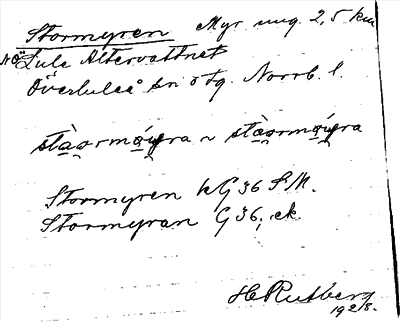 Stormyren Myr ung. 2,5 km
NÖ Lule Altervattnet
Överluleå sn o tg. Norrb. l.
Stormyren kG36 S.M.
Stormyran G36, ek.
H Rutberg
1928.